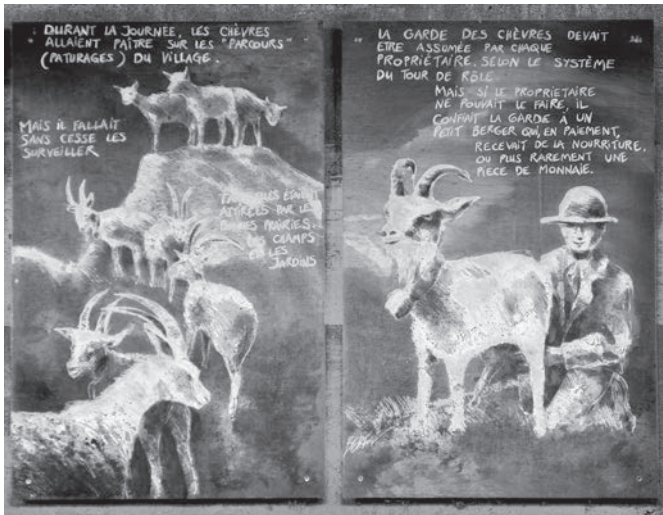 DURANT LA JOURNÉE, LES CHÈVRES
ALLAIENT PAÎTRE SUR LES "PARCOURS"
(PATURAGES) DU VILLAGE.
MAIS IL FALLAIT
SANS CESSE LES
SURVEILLER
ATTIRÉES PAR LES
PRAIRIES.
CHAMPS
LES
JARDINS
LA GARDE DES CHÈVRES DEVAIT
ETRE ASSUMÉE PAR CHAQUE
PROPRIÉTAIRE, SELON LE SYSTÈME
DU TOUR DE RÔLE
MAIS SI LE PROPRIETAIRE
NE POUVAIT LE FAIRE, IL
CONFIAIT LA GARDE À UN
PETIT BERGER QUI, EN PAIEMENT,
RECEVAIT DE LA NOURRITURE.
OU PLUS RAREMENT UNE
PIECE DE MONNAIE.